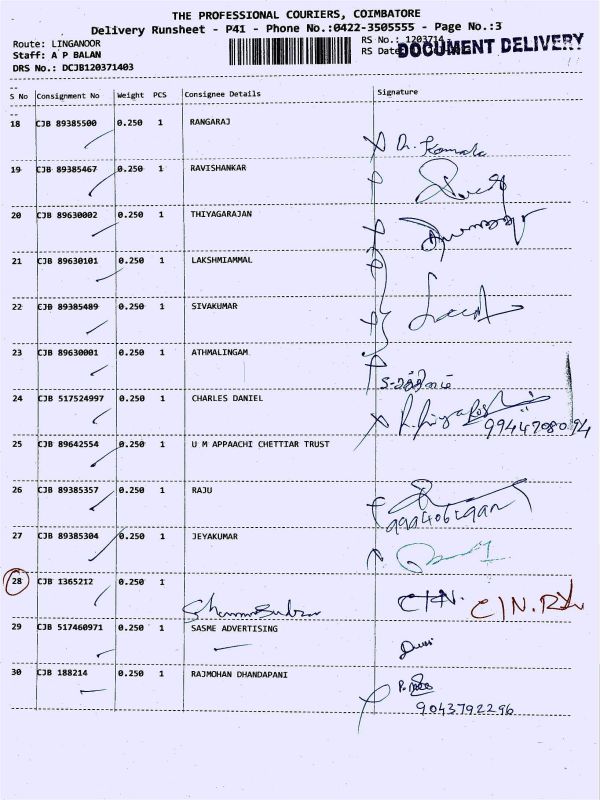 THE PROFESSIONAL COURIERS, COIMBATORE
Delivery Runsheet - P41 - Phone No.:0422-3505555 - Page No.:3
Route: LINGANOOR
Staff: A P BALAN
DRS No.: DCJB120371403
RS No.: 1203714
RS Date
DOCUMENT DELIVERY
S No Consignment No Weight PCS Consignee Details Signature
18 CJB 89385500 0.250 1 RANGARAJ
19 CJB 89385467 0.250 1 RAVISHANKAR
20 CJB 89630002 0.250 1 THIYAGARAJAN
21 CJB 89630101 0.250 1 LAKSHMIAMMAL
22 CJB 89385489 0.250 1 SIVAKUMAR
23 CJB 89630001 0.250 1 ATHMALINGAM
24 CJB 517524997 0.250 1 CHARLES DANIEL
9944708094
25 CJB 89642554 0.250 1 U M APPAACHI CHETTIAR TRUST
26 CJB 89385357 0.250 1 RAJU
27 CJB 89385304 0.250 1 JEYAKUMAR
28 CJB 1365212 0.250 1
29 CJB 517460971 0.250 1 SASME ADVERTISING
30 CJB 188214 0.250 1 RAJMOHAN DHANDAPANI
9043792296